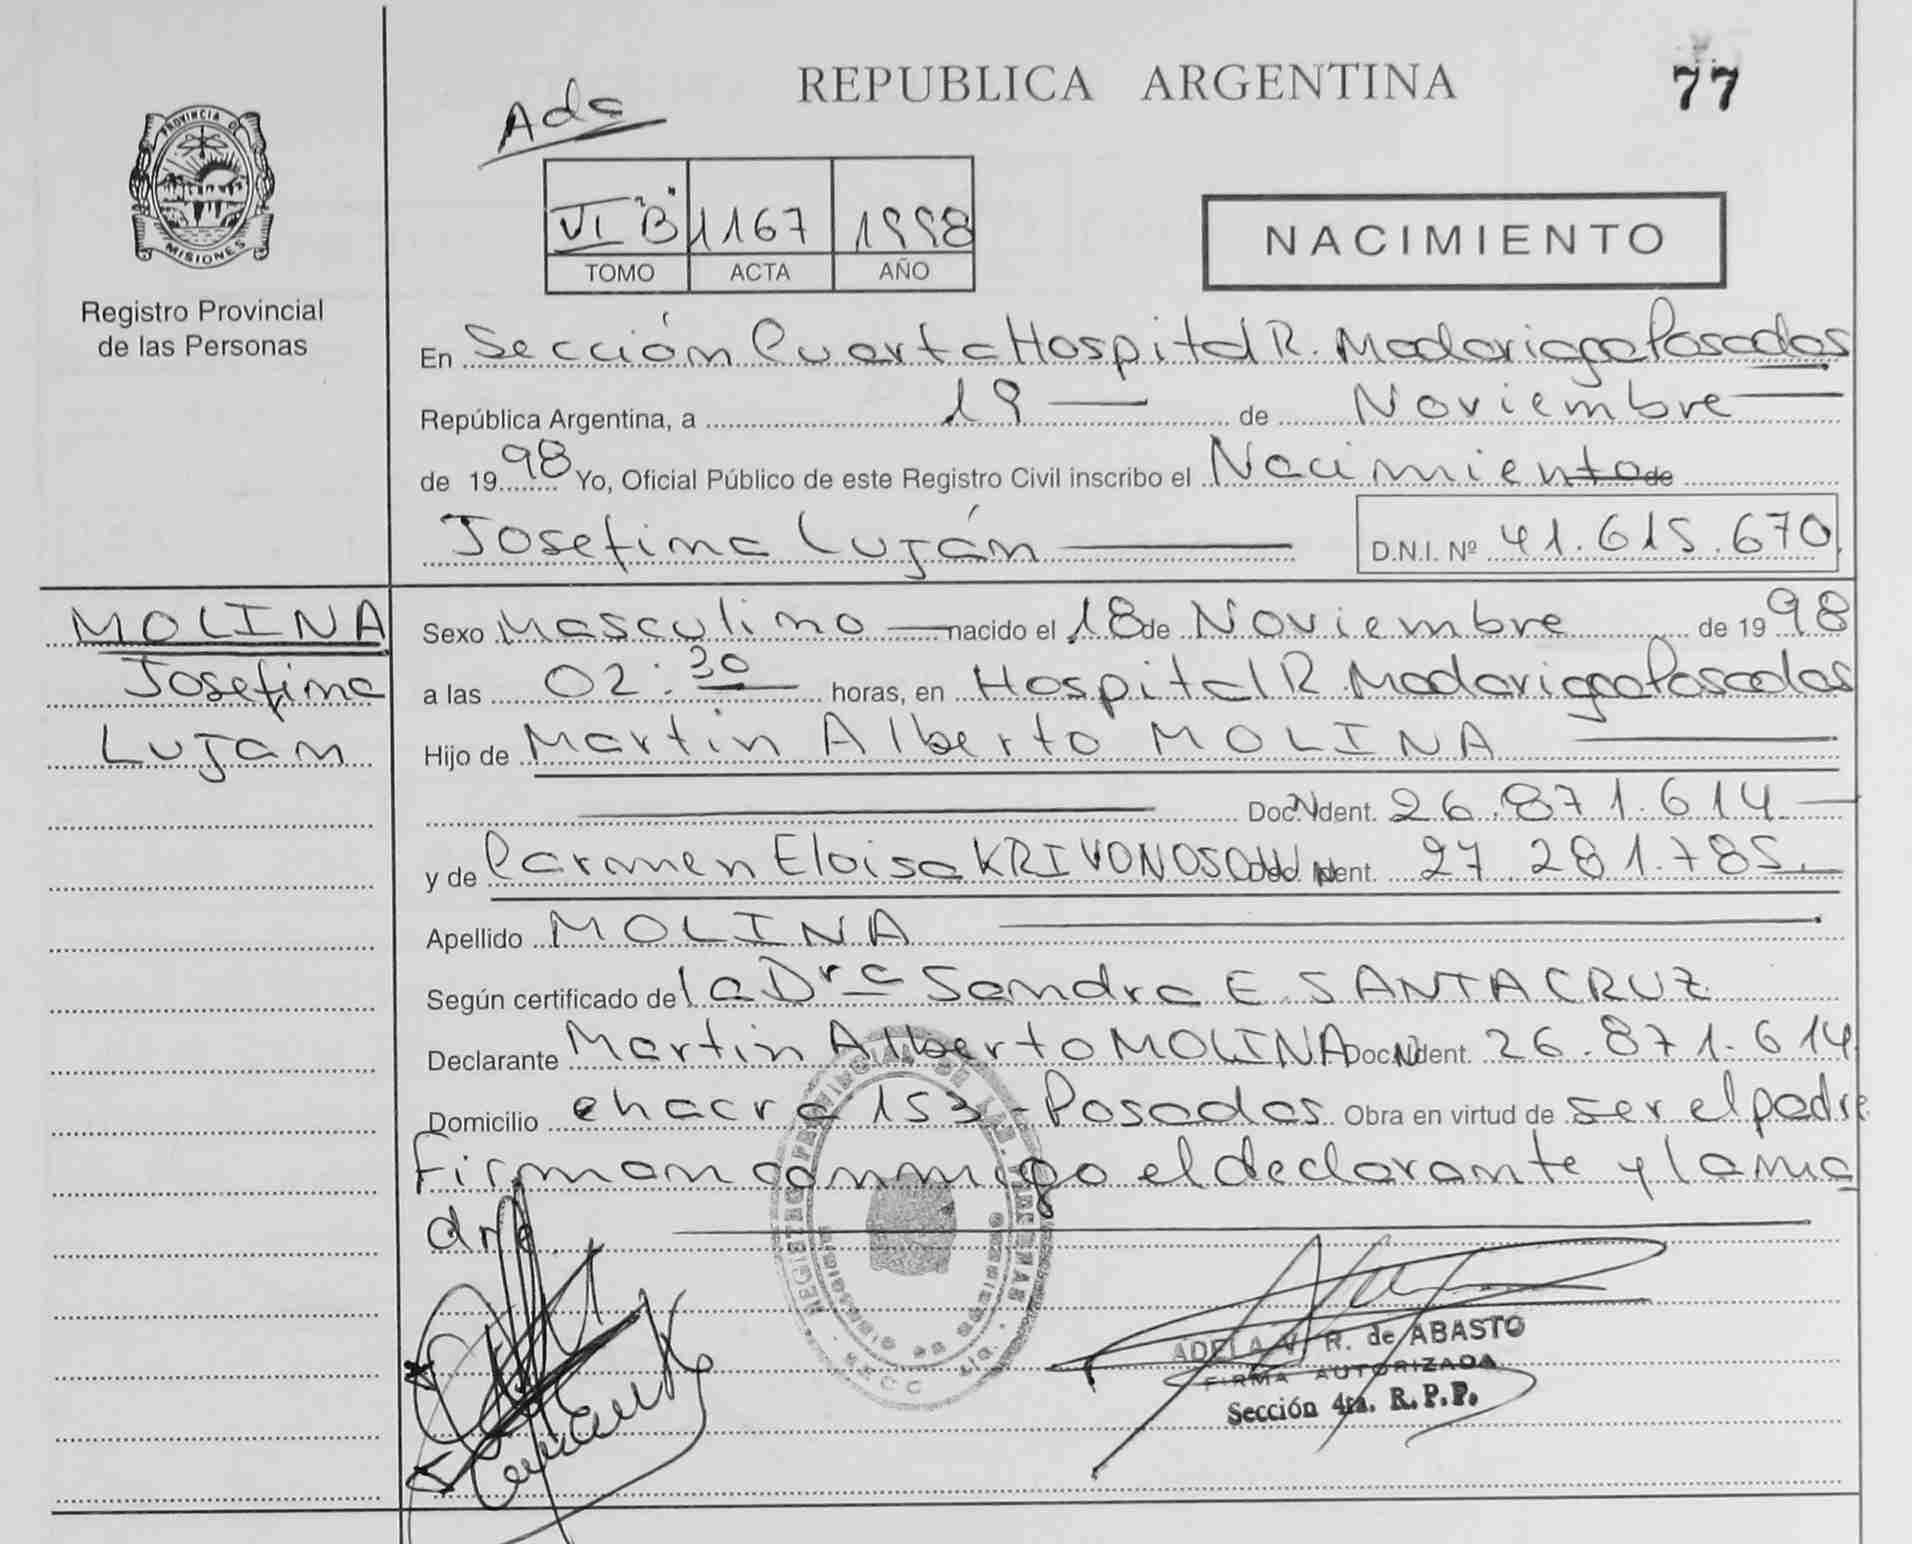 REPUBLICA ARGENTINA
77
Ada
PROVINCIA DE
MISIONES
Registro Provincial
de las Personas
VI "B" 1167 1998
TOMO ACTA AÑO
NACIMIENTO
En Sección Cuarta Hospital R. Madariaga Posadas
República Argentina, a 19 de Noviembre
de 1998 Yo, Oficial Público de este Registro Civil inscribo el Nacimiento de
Josefina Luján D.N.I. Nº 41.615.670
MOLINA
Josefina
Lujan
Sexo Masculino nacido el 18 de Noviembre de 1998
a las 02:30 horas, en Hospital R. Madariaga Posadas
Hijo de Martin Alberto MOLINA
Doc. Ident. 26.871.614
y de Carmen Eloisa KRIVONOSOW Doc. Ident. 27.281.785.
Apellido MOLINA
Según certificado de la Dra Sandra E. SANTACRUZ
Declarante Martin Alberto MOLINA Doc. Ident. 26.871.614
Domicilio chacra 153 - Posadas Obra en virtud de ser el padre
Firman conmigo el declarante y la ma
dre
REGISTRO PROVINCIAL DE LAS PERSONAS
ADELA V. R. de ABASTO
FIRMA AUTORIZADA
Sección 4ta. R.P.P.